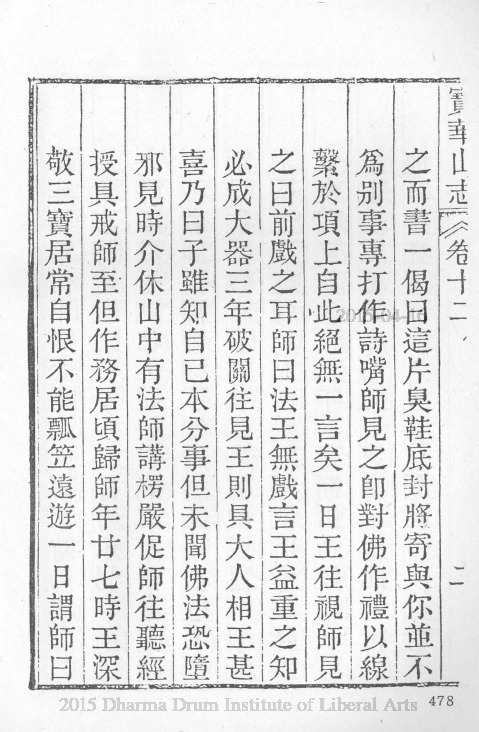 寶華山志　卷十二　二
之而書一偈曰這片臭鞋底封將寄與你並不
爲别事專打作詩嘴師見之卽對佛作禮以線
繫於項上自此絕無一言矣一日王往視師見
之曰前戲之耳師曰法王無戲言王益重之知
必成大器三年破關往見王則具大人相王甚
喜乃曰子雖知自己本分事但未聞佛法恐墮
邪見時介休山中有法師講楞嚴促師往聽經
授具戒師至但作務居頃歸師年廿七時王深
敬三寶居常自恨不能瓢笠遠遊一日謂師曰
478
2015 Dharma Drum Institute of Liberal Arts